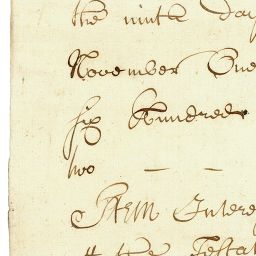 the ninth day
November One
six Hundred
two — —
Item Intere
the Testa